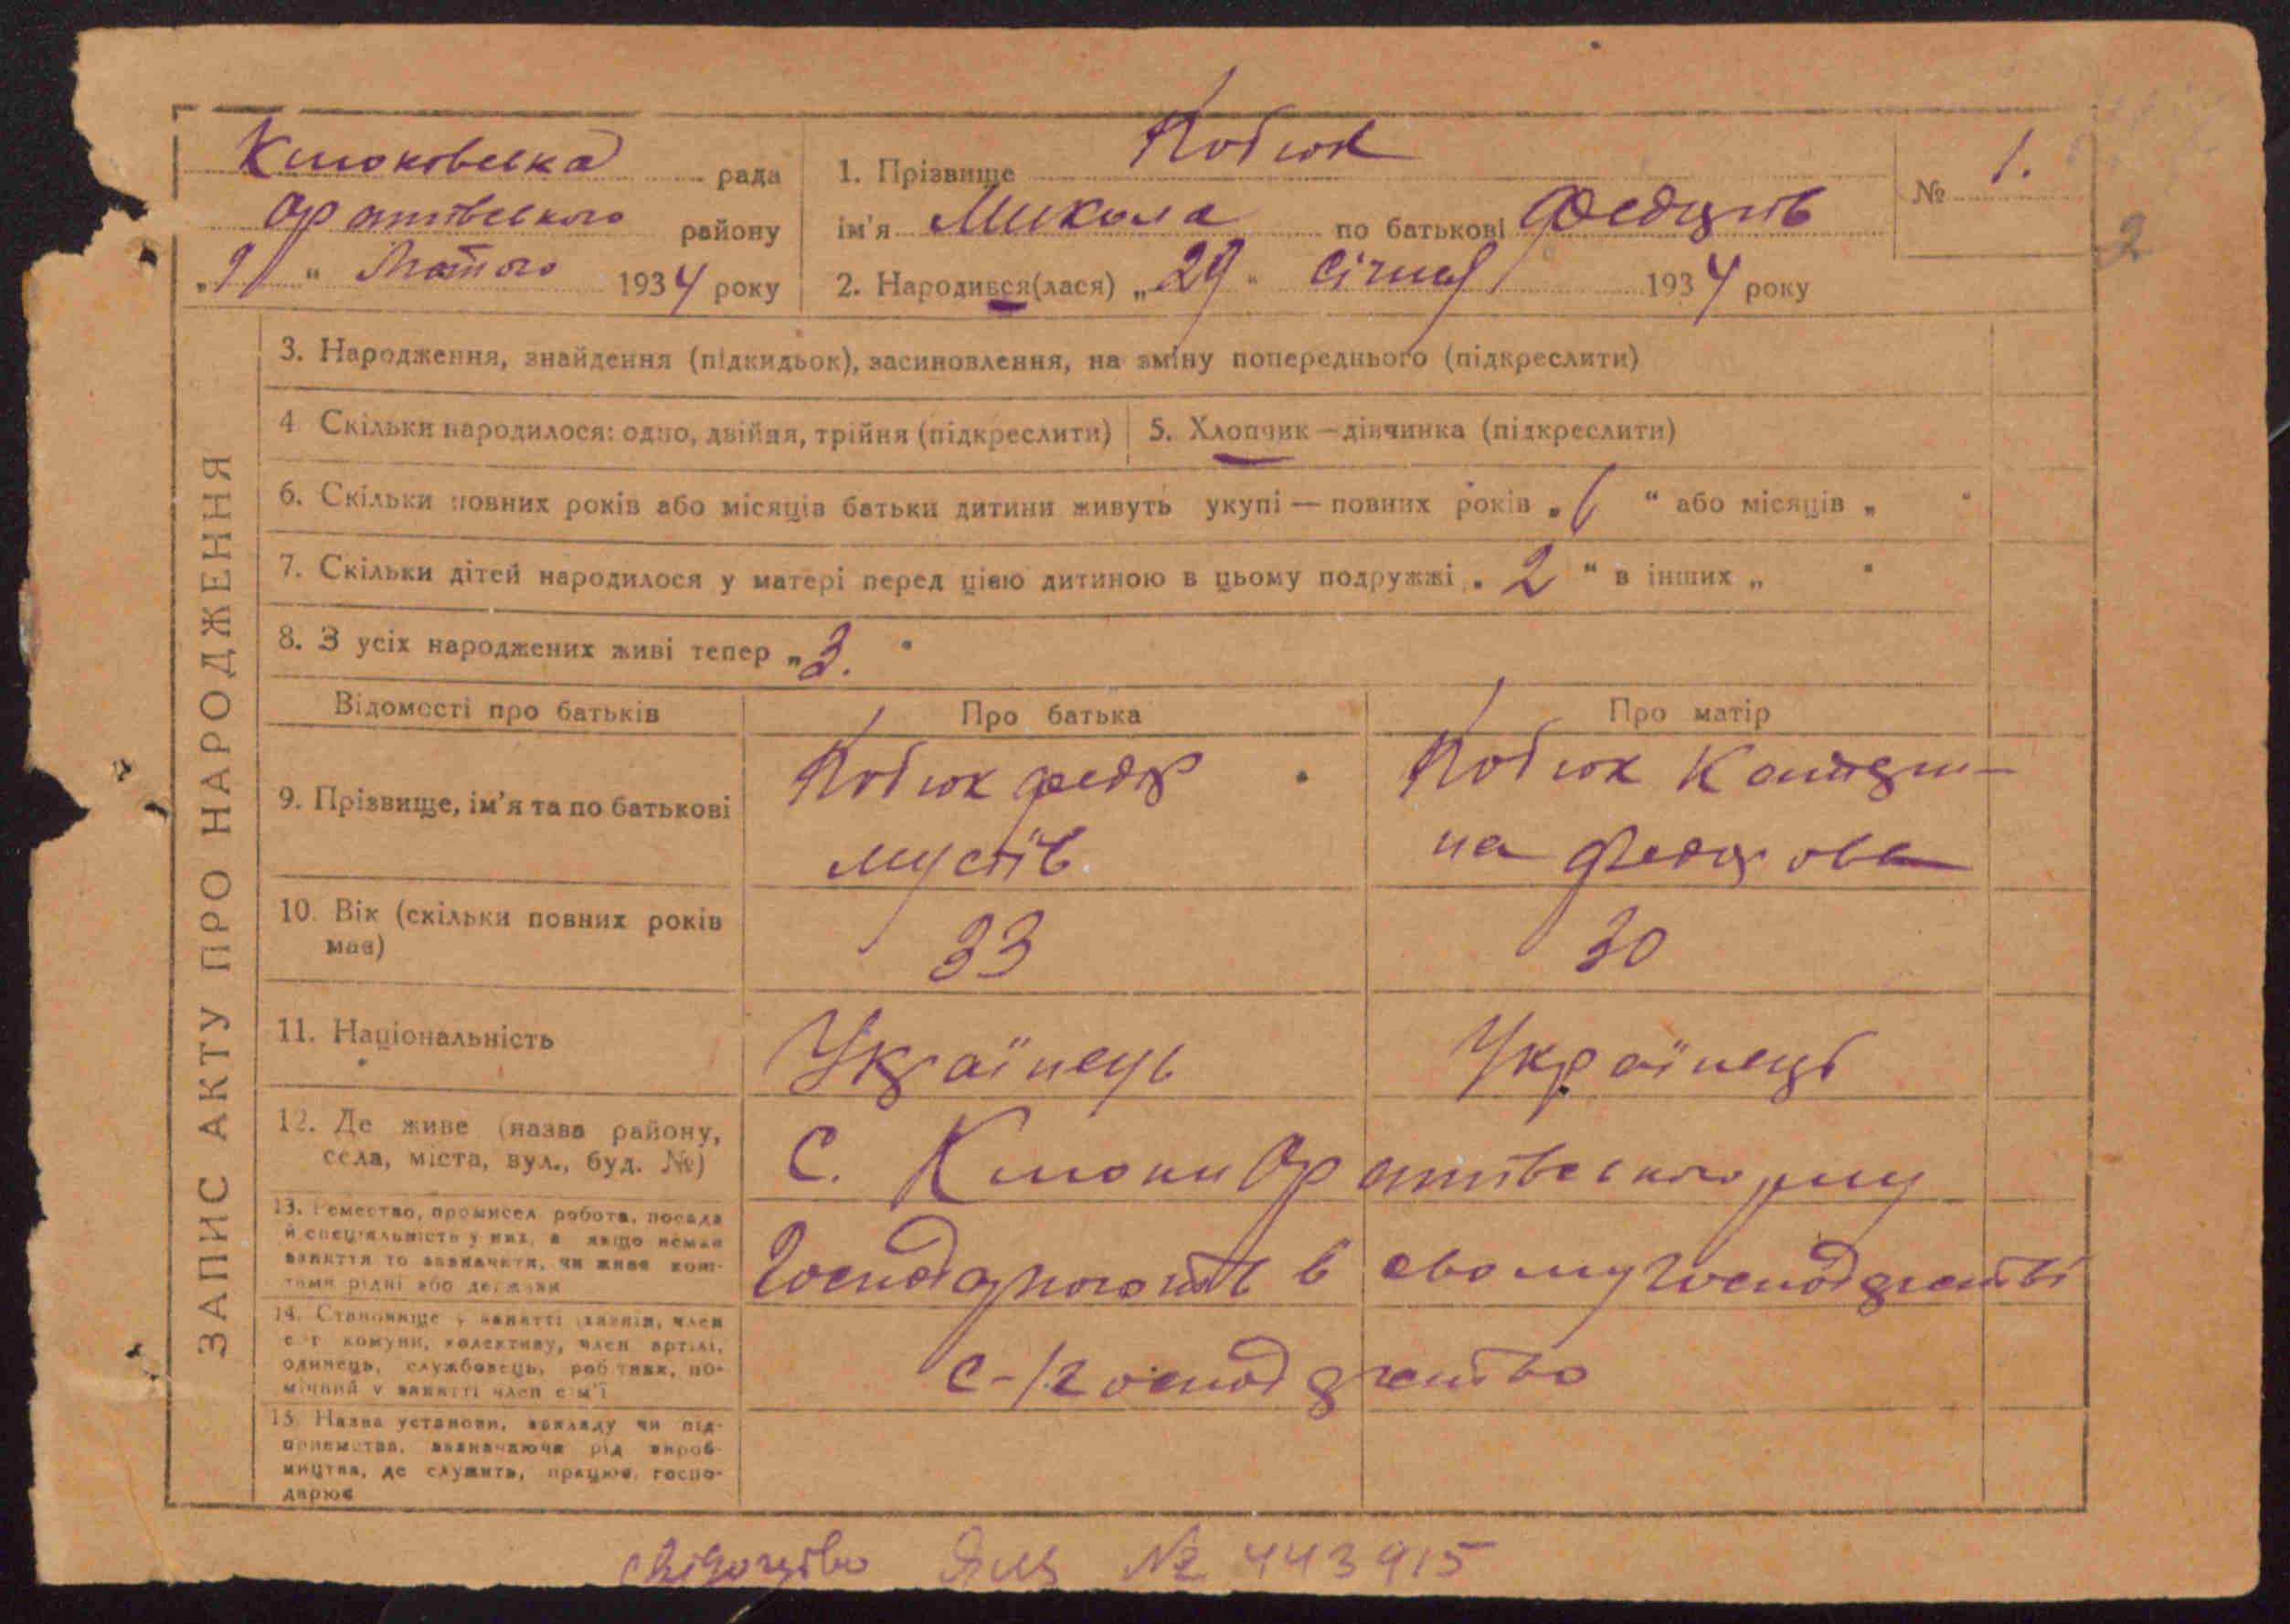 Клюківська рада
Оратівського району
„9“ Лютого 1934 року
1. Прізвище Кобюк
ім’я Микола по батькові Федорів
2. Народився(лася) „29“ січня 1934 року
№ 1.
2
ЗАПИС АКТУ ПРО НАРОДЖЕННЯ
3. Народження, знайдення (підкидьок), засиновлення, на зміну попереднього (підкреслити)
4 Скільки народилося: одно, двійня, трійня (підкреслити)
5. Хлопчик — дівчинка (підкреслити)
6. Скільки повних років або місяців батьки дитини живуть укупі — повних років „ “ або місяців „ “
7. Скільки дітей народилося у матері перед цією дитиною в цьому подружжі „2“ в інших „ “
8. З усіх народжених живі тепер „3.“
Відомості про батьків
Про батька
Про матір
9. Прізвище, ім’я та по батькові
Кобюк Федор
Кобюк Катери-
на Федорова
10. Вік (скільки повних років
має)
33
30
11. Національність
Українець
Українець
12. Де живе (назва району,
села, міста, вул., буд. №)
С. Клюки Оратівського р-ну
13. Ремество, промисел робота, посада
й спеціяльність у них, а якщо немає
заняття то зазначити, чи живе кош-
тами рідні або держави
Господарюють в свому господарстві
14. Становище у занятті (хазяїн, член
с-г комуни, колективу, член артілі,
одинець, службовець, робітник, по-
мічний у занятті член сім’ї
с-/господарство
15. Назва установи, закладу чи під-
приємства, зазначаючи рід вироб-
ництва, де служить, працює, госпо-
дарює
свідоцтво № 443915